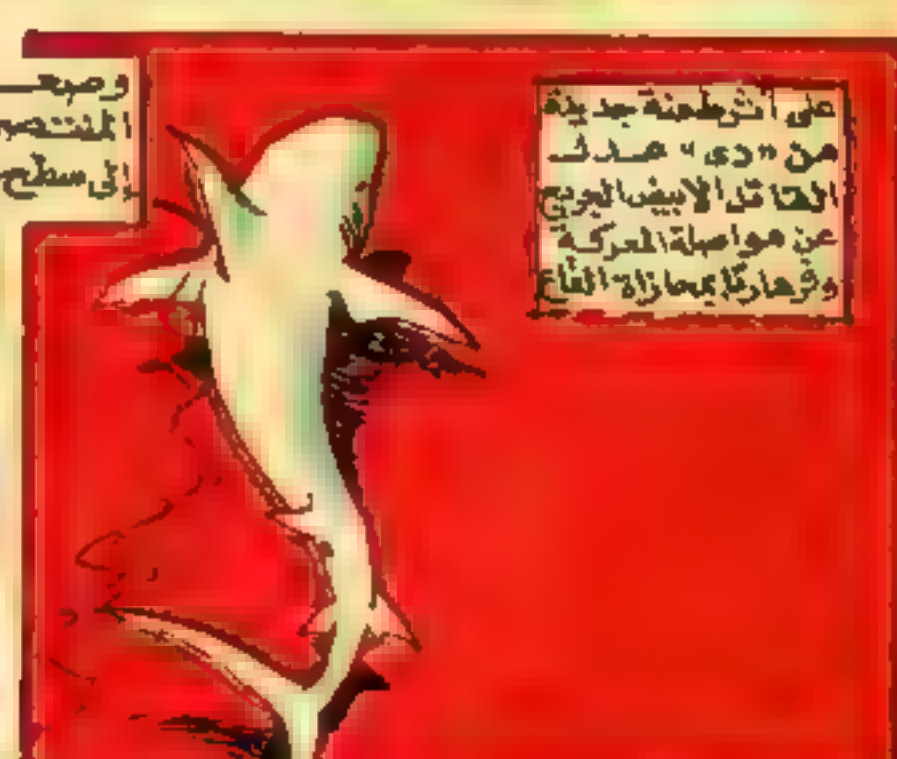 على اثر طعنة جديدة
من "دى" عدل
القاتل الابيض الجريح
عن مواصلة المعركة
وفر هاربًا بمحازاة القاع
وصعد
المنتصر
إلى سطح